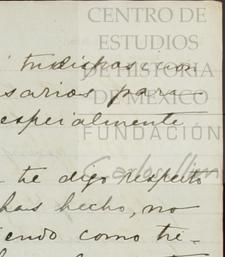 CENTRO DE
ESTUDIOS
DE HISTORIA
DE MÉXICO
FUNDACIÓN
indisposicion
sarios para
especialmente
te digo respeto
hais hecho, no
iendo como tie-